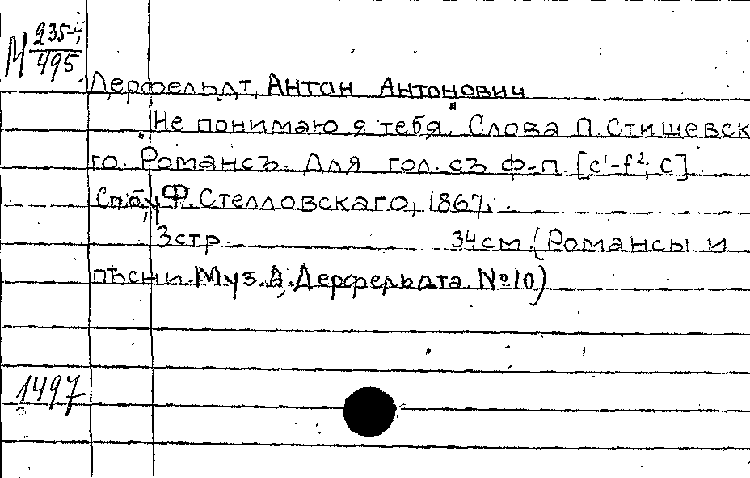 М 235-4
495
Дерфельдт, Антон Антонович
"Не понимаю я тебя." Слова П. Стишевск
го. Романсъ. Для гол. съ ф-п. [c¹-f², C]
Спб., Ф. Стелловскаго, 1867.
3 стр 34 см. (Романсы и
пѣсни. Муз. А. Дерфельдта. №10)
1497